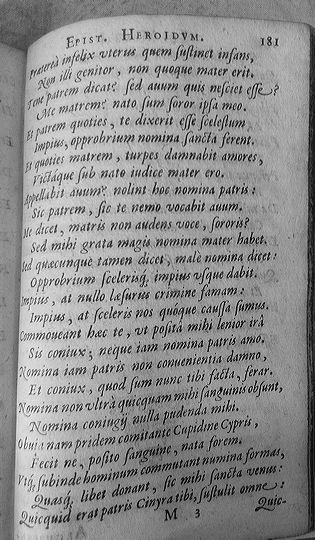 EPIST. HEROIDVM. 181
Præterea infelix vterus quem sustinet infans,
Non illi genitor, non quoque mater erit.
me patrem dicat? sed auum quis nesciet esse?
Me matrem? nato sum soror ipsa meo.
Et patrem quoties, te dixerit esse scelestum
Impius, opprobrium nomina sancta ferent.
Et quoties matrem, turpes damnabit amores,
Victáque sub nato iudice mater ero.
Appellabit auum? nolint hoc nomina patris:
Sic patrem, sic te nemo vocabit auum.
Me dicet, matris non audens voce, sororis?
Sed mihi grata magis nomina mater habet.
Sed quæcunque tamen dicet, malè nomina dicet:
Opprobrium scelerisq́; impius vsque dabit.
Impius, at nullo læsurus crimine famam:
Impius, at sceleris nos quóque caussa sumus.
Commoueant hæc te, vt posità mihi lenior irâ
Sis coniux; neque iam nomina patris amo.
Nomina iam patris non conuenientia damno,
Et coniux, quod sum nunc tibi facta, ferar.
Nomina non vltrà quicquam mihi sanguinis obsunt,
Nomina coniugij nulla pudenda mihi.
Obuia nam pridem comitante Cupidine Cypris,
Fecit ne, posito sanguine, nata forem.
Vtq́; subinde hominum commutant numina formas,
Quasq́; libet donant, sic mihi sancta venus:
Quicquid erat patris Cinyra tibi, sustulit omne:
M 3 Quic-